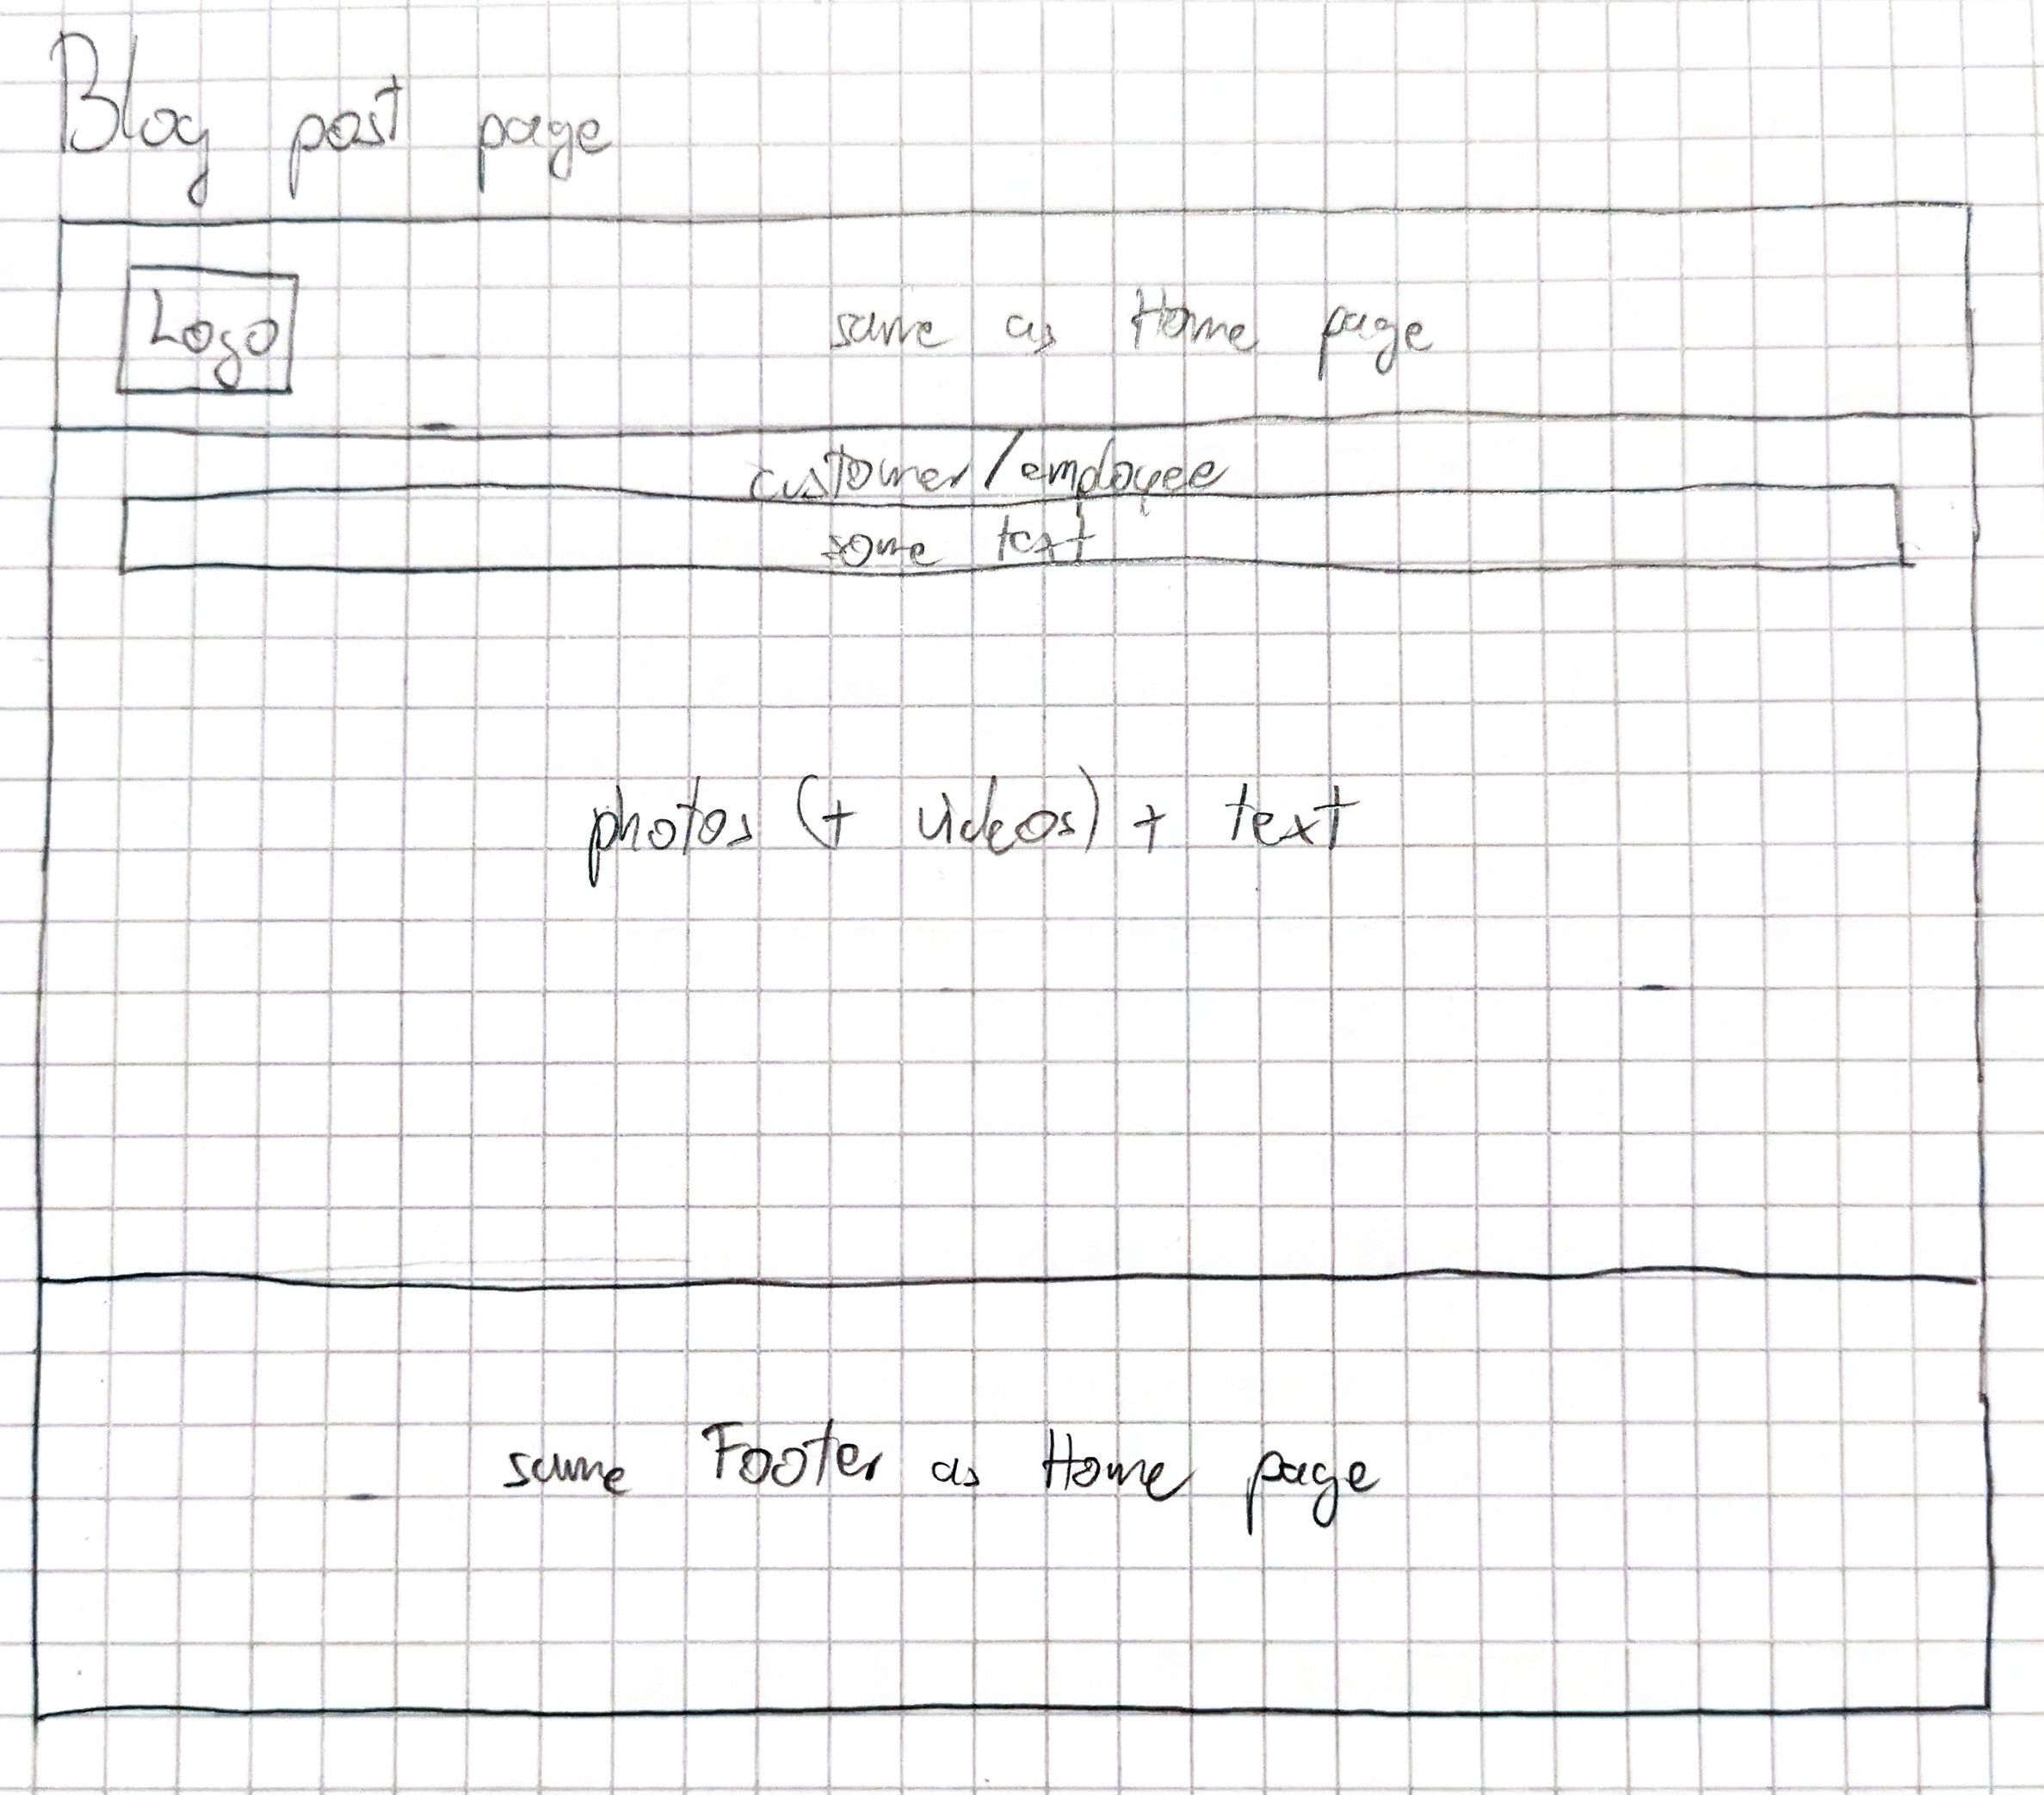 Blog post page
Logo same as Home page
customer/employee
some text
photos (+ videos) + text
same Footer as Home page